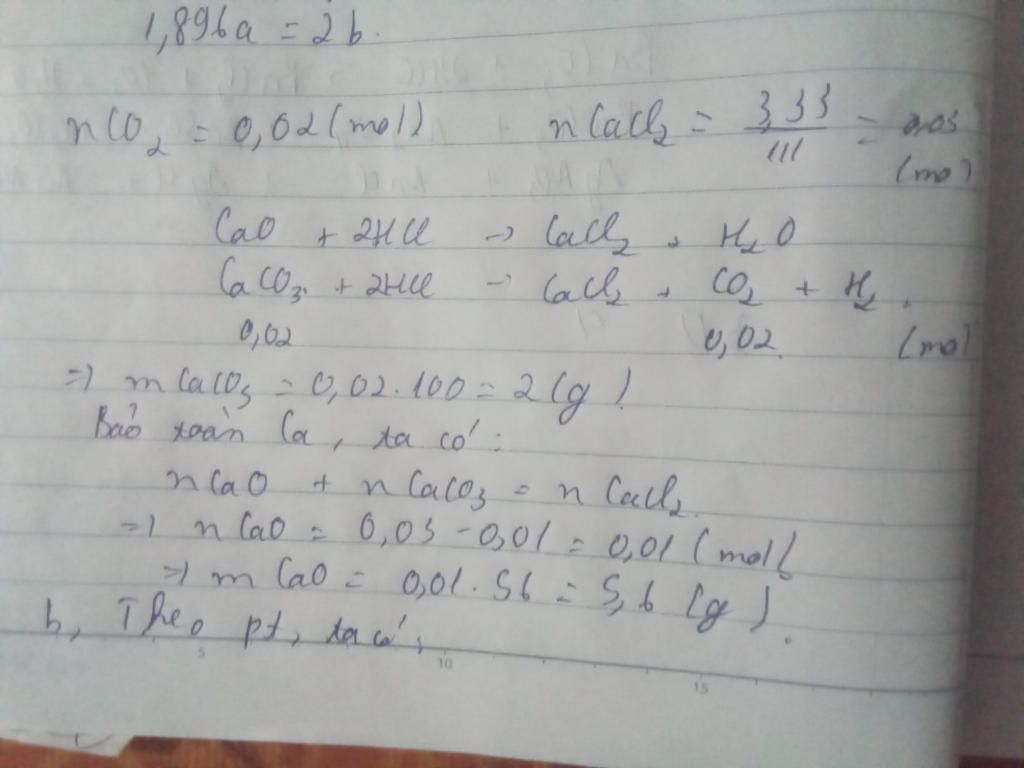 1,896a = 2b.
nCO₂ = 0,02 (mol) nCaCl₂ = 3,33/111 = 0,03 (mol)
CaO + 2HCl → CaCl₂ + H₂O
CaCO₃ + 2HCl → CaCl₂ + CO₂ + H₂
0,02 0,02 (mol)
=) mCaCO₃ = 0,02.100 = 2 (g)
Bảo toàn Ca, ta có:
nCaO + nCaCO₃ = nCaCl₂
=) nCaO = 0,03 - 0,01 = 0,01 (mol)
=) mCaO = 0,01.56 = 5,6 (g).
b, Theo pt, ta có:
5 10 15